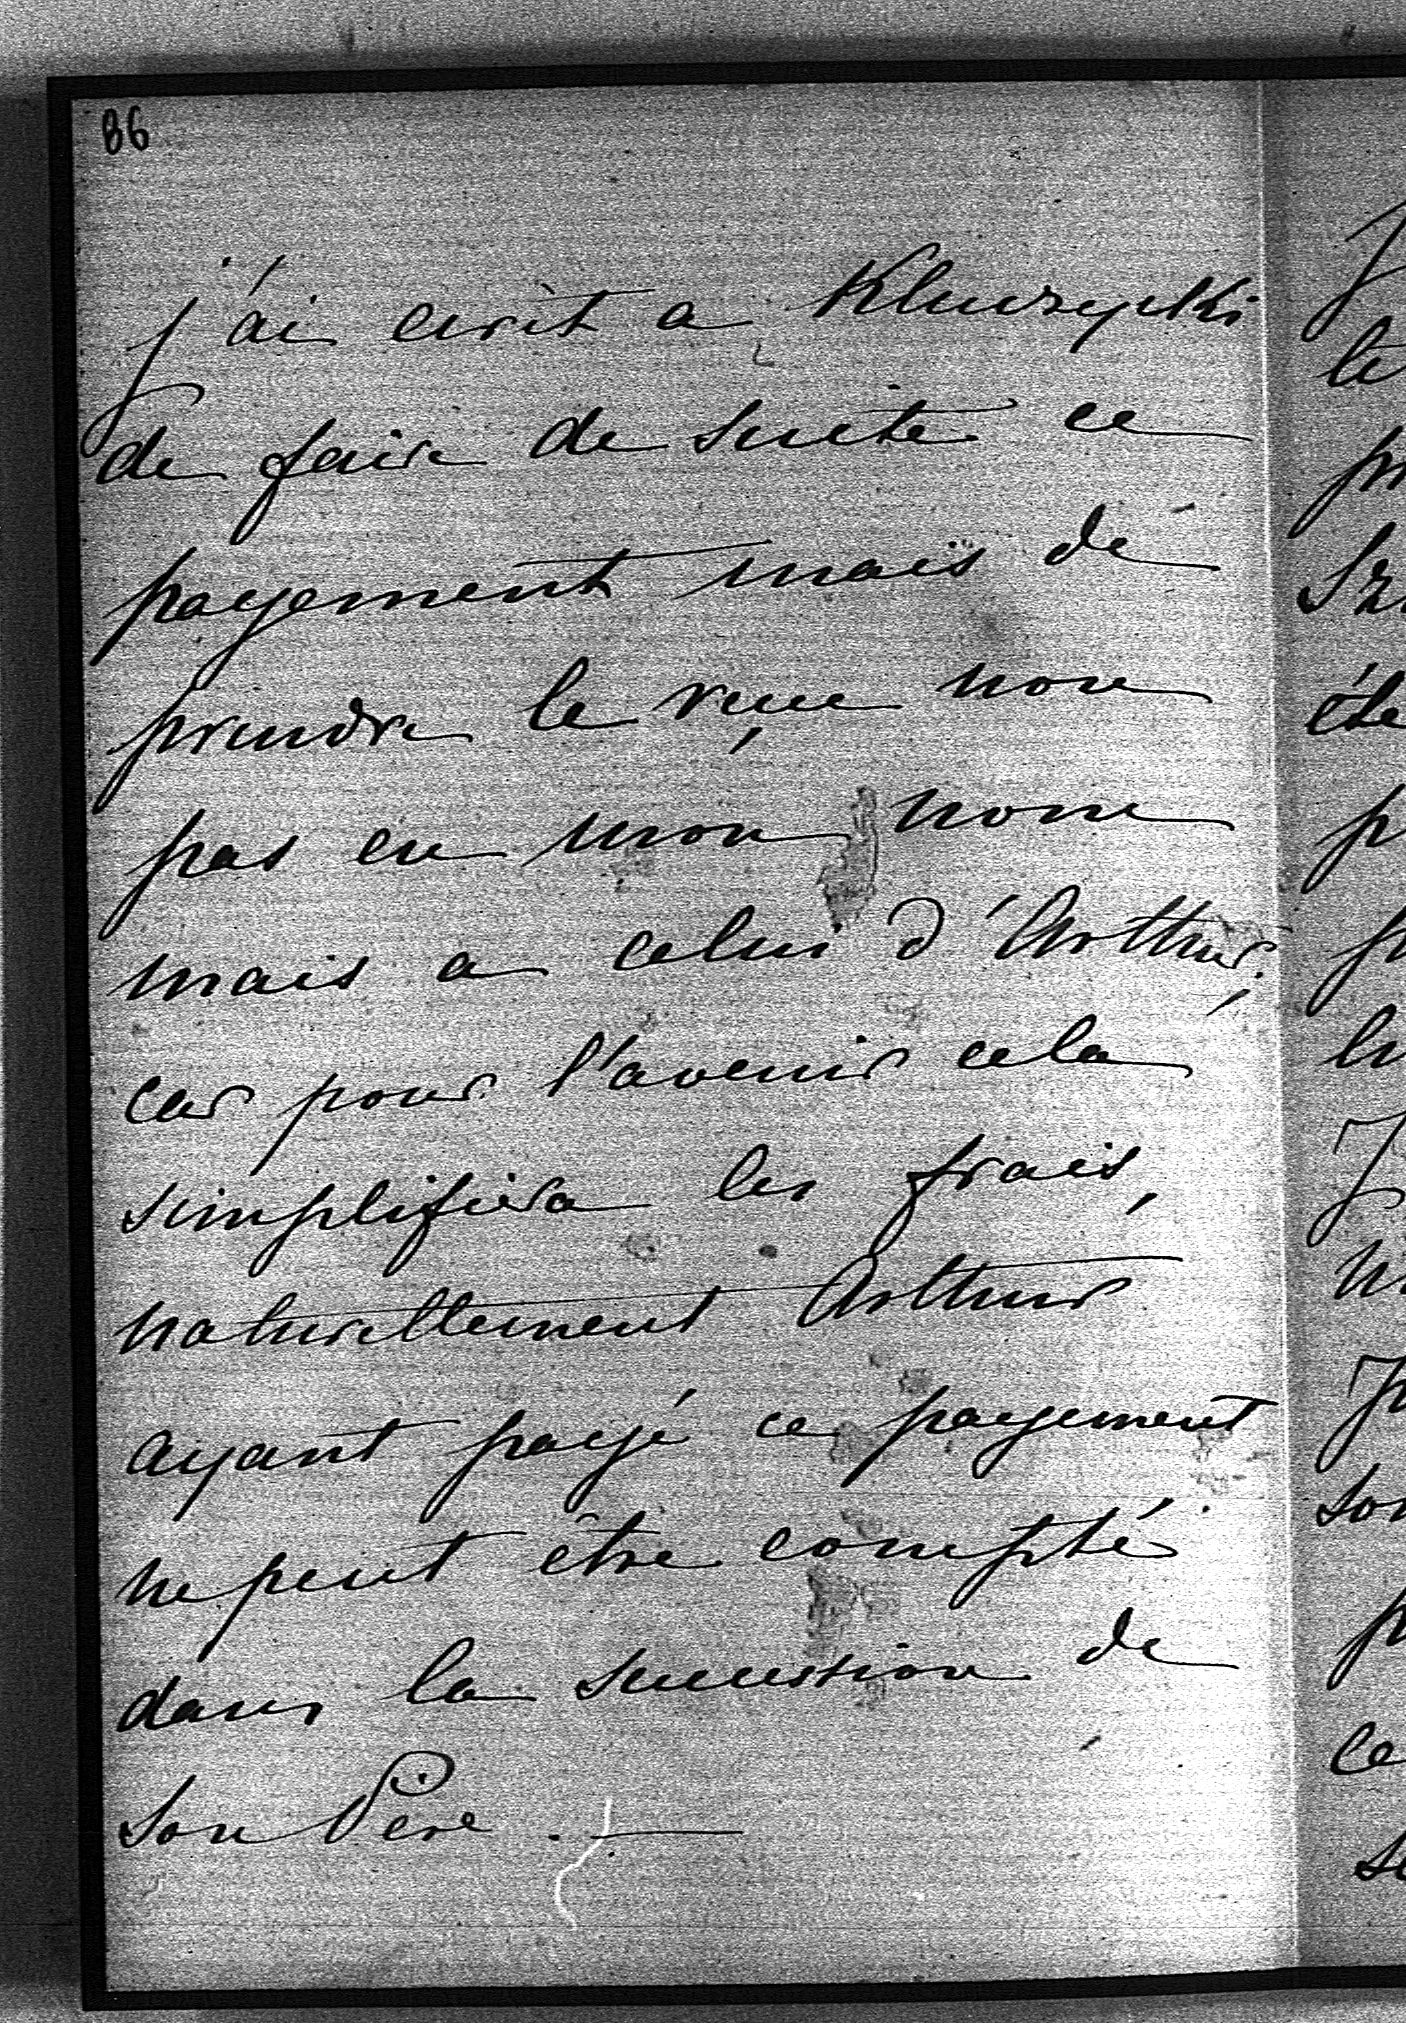 86
j'ai ecrit a Kluczycki
de faire de suite ce
payement mais de
prendre le reçu non
pas en mon nom
mais a celui d'Arthur,
car pour l'avenir cela
simplifiera les frais,
naturellement Arthur
ayant payé ce payement
ne peut être compté
dans la succession de
son Père. —